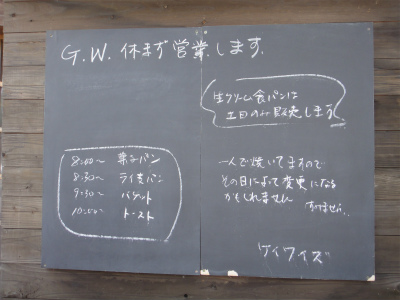 G.W. 休まず営業します.
生クリーム食パンは
土日のみ販売します
8:00〜 菓子パン
8:30〜 ライ麦パン
9:30〜 バゲット
10:50〜 トースト
一人で焼いてますので
その日によって変更になる
かもしれません すみません..
ケイワイズ